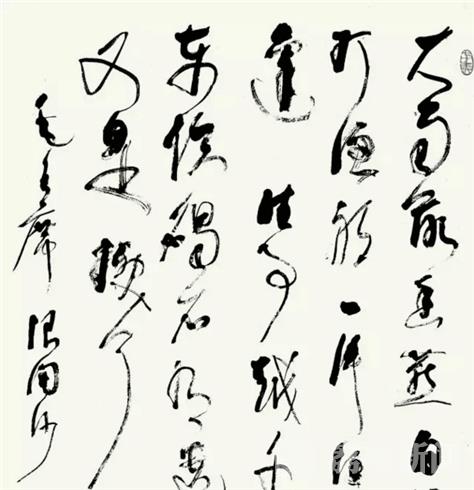 大雨落幽燕白
打鱼船一片汪
邊 往事越千
东临碣石有遗
又是换了
毛主席浪淘沙